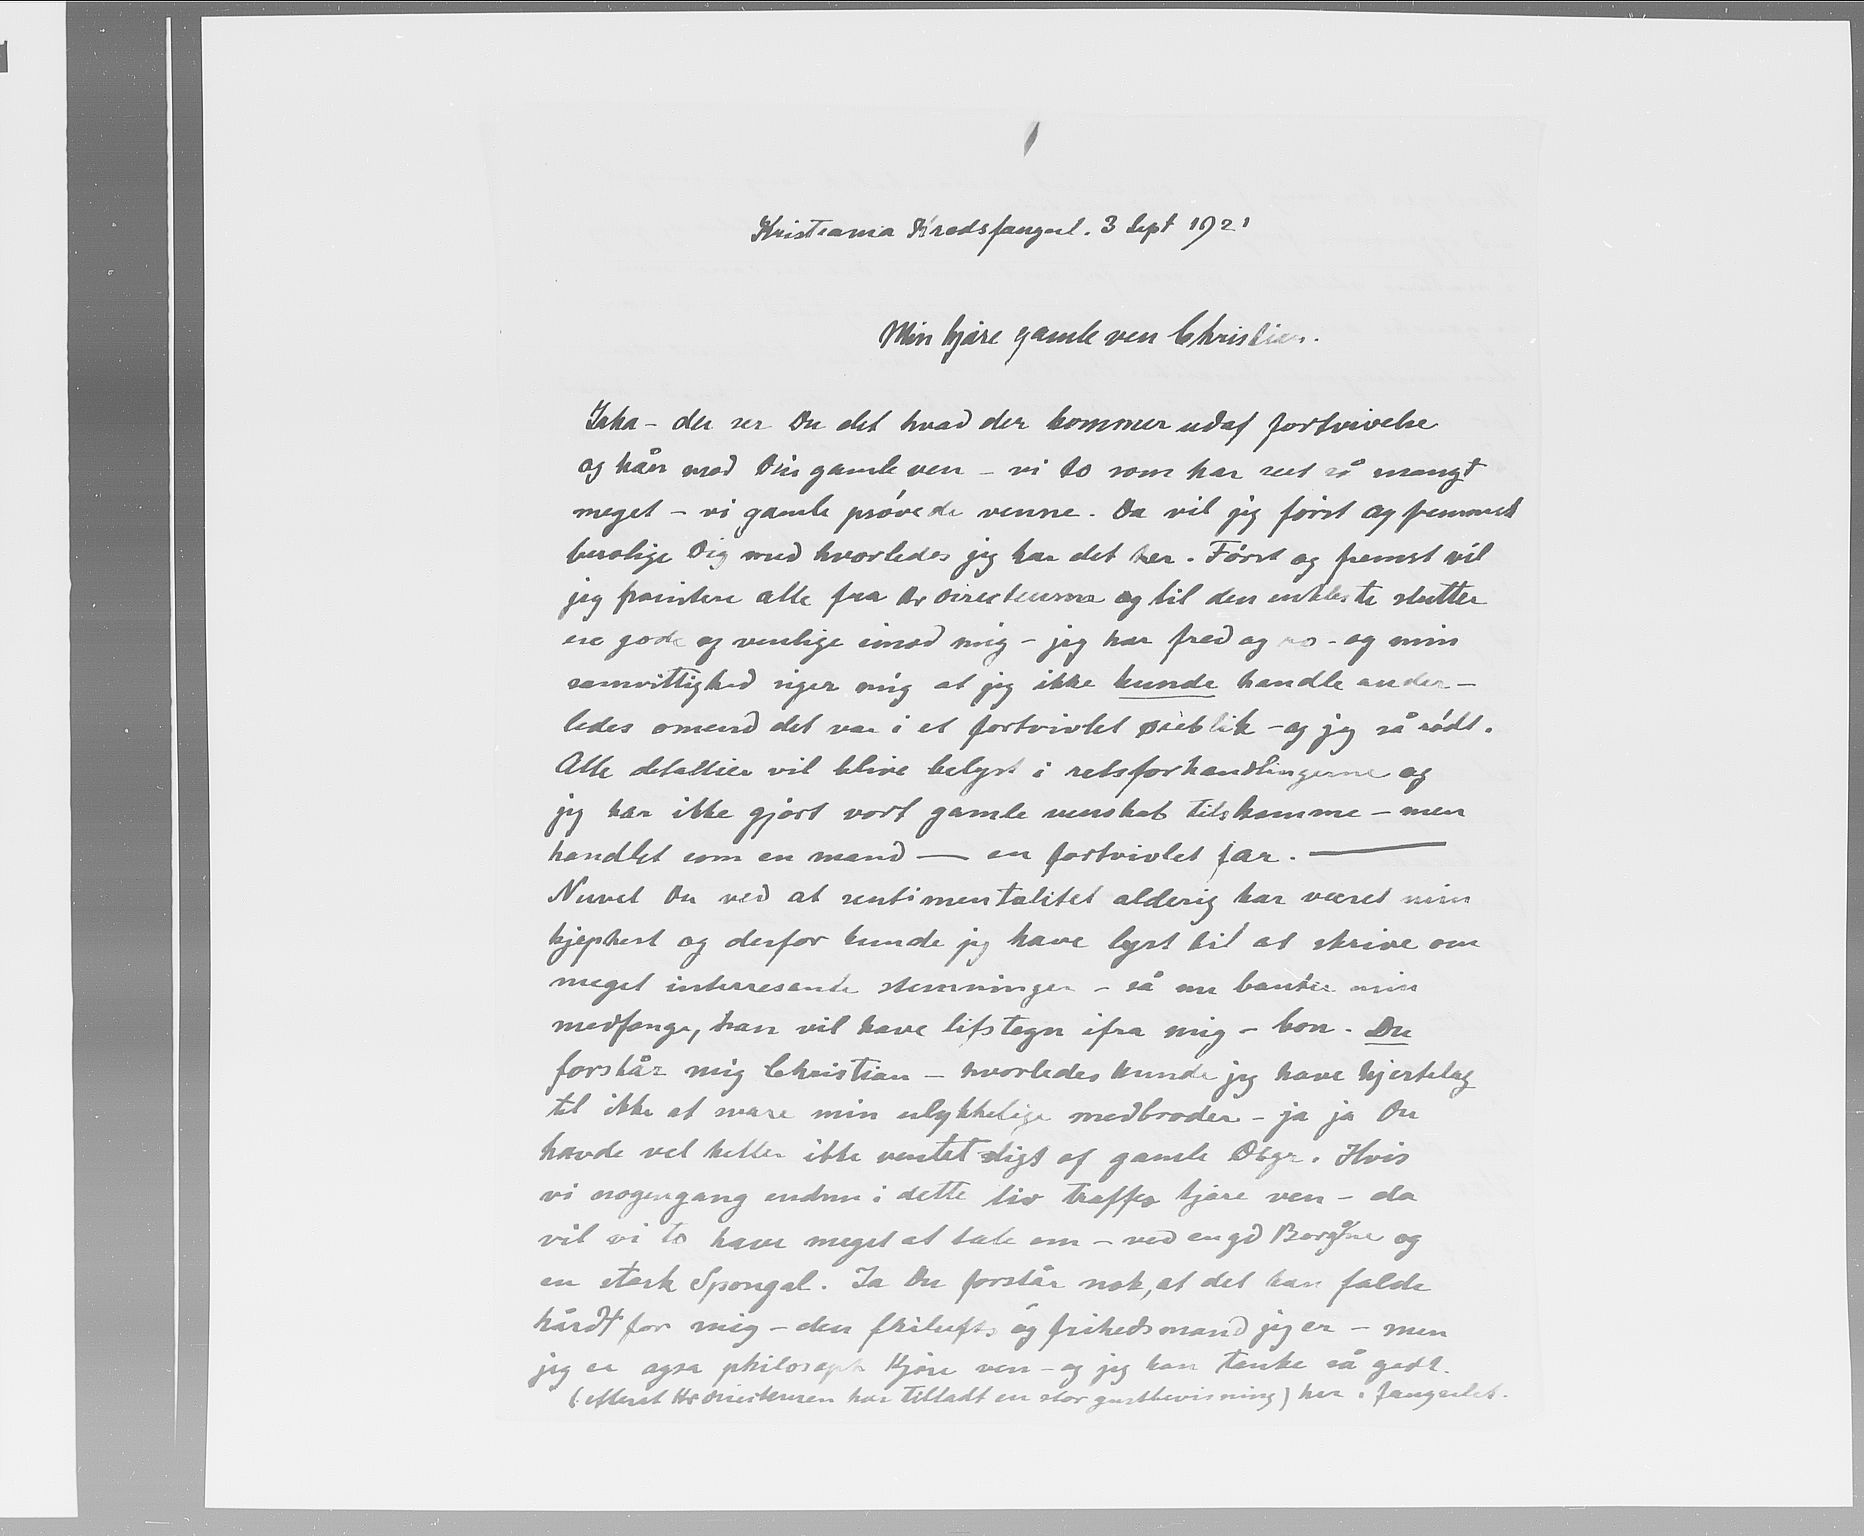 Kristiania Kredsfængsel. 3 Sept 1921
Min kjære gamle ven Christian.
Jaha – der ser Du det hvad der kommer udaf fortvivelse
og hån mod Din gamle ven – vi to som har set så mangt
meget – vi gamle prövede venne. Da vil jeg först og fremmest
berolige Dig med hvorledes jeg har det her. Först og fremst vil
jeg alle fra Hr Directeurne og til den enkleste slutter
ere gode og venlige imod mig – jeg har fred og ro – og min
samvittighed siger mig at jeg ikke kunde handle ander–
ledes omend det var i et fortvivlet øieblik – og jeg så rödt.
Alle detallier vil blive belyst i retsforhandlingerne og
jeg har ikke gjört vort gamle venskab tilskamme – men
handlet som en mand — en fortvivlet far. —
Nuvel Du ved at sentimentalitet alderig har været min
kjephest og derfor kunde jeg have lyst til at skrive om
meget interresante stemninger – så nu banker min
medfange, han vil have lifstegn ifra mig – bon. Du
forstår mig Christian – hvorledes kunde jeg have hjertelag
til ikke at svare min ulykkelige medbroder – ja ja Du
havde vel heller ikke ventet sligt af gamle. Hvis
vi nogengang endnu i dette liv træffes kjære ven – da
vil vi to have meget at tale om – ved en gd Borgogne og
en stærk Spongal. Ja Du forstår nok, at det kan falde
hårdt for mig – den frilufts og frihedsmand jeg er – men
jeg er ogsa philosoph kjære ven – og jeg kan tænke så godt.
(: efterat Hr Directeuren har tilladt en stor gunstbevisning) her i fængselet.